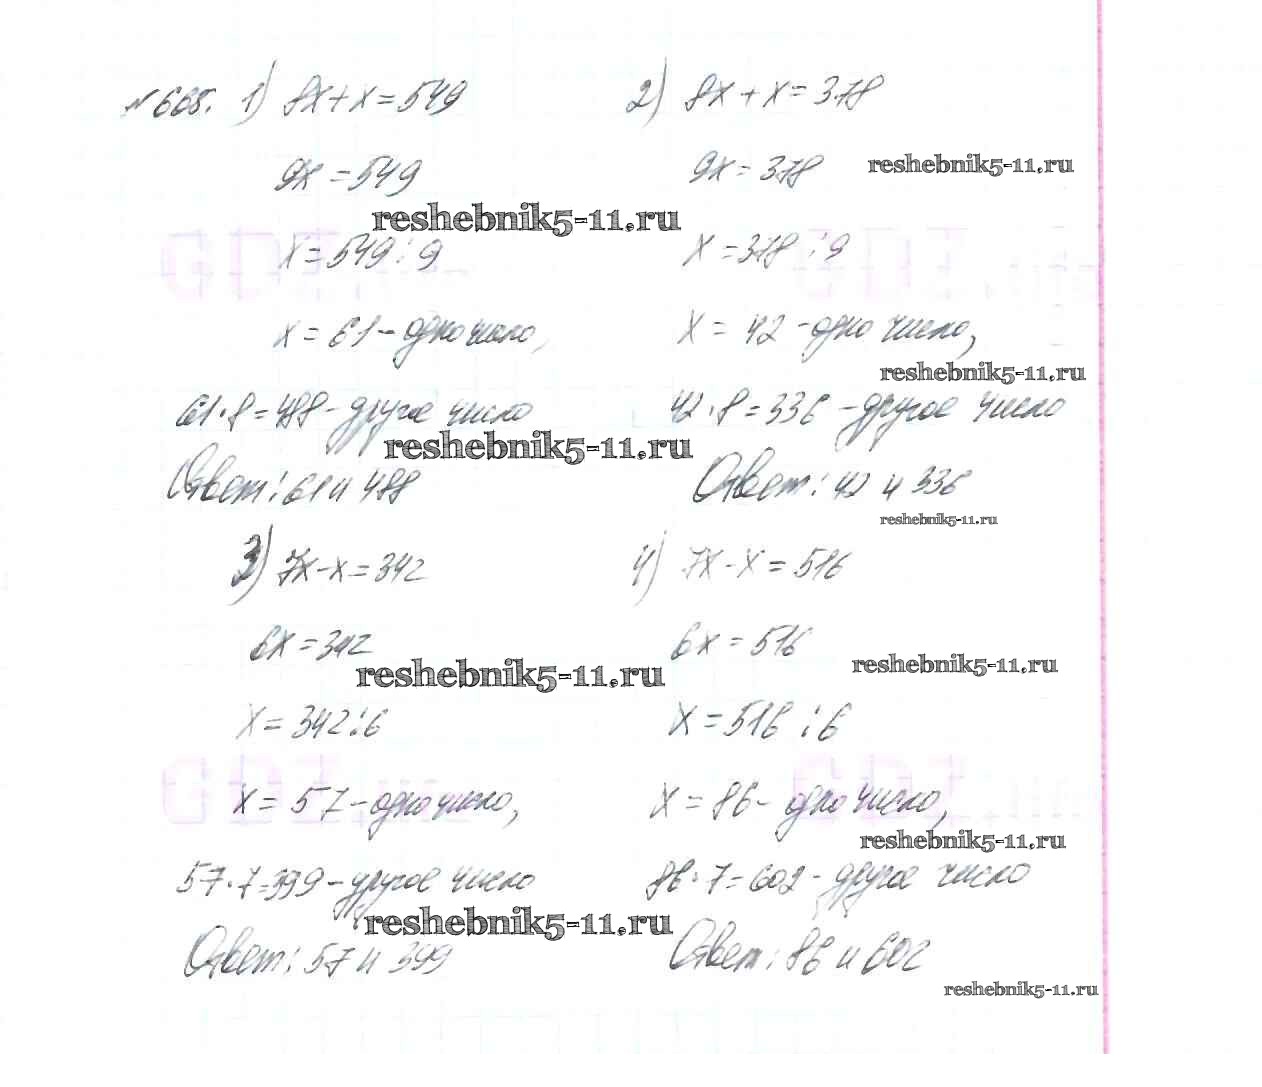 №668. 1) 8x+x=549
9x=549
x=549:9
x=61-одно число,
61·8=488-другое число
Ответ: 61 и 488
2) 8x+x=378
9x=378
x=378:9
x=42-одно число,
42·8=336-другое число
Ответ: 42 и 336
3) 7x-x=342
6x=342
x=342:6
x=57-одно число,
57·7=399-другое число
Ответ: 57 и 399
4) 7x-x=516
6x=516
x=516:6
x=86-одно число,
86·7=602-другое число
Ответ: 86 и 602
reshebnik5-11.ru
reshebnik5-11.ru
reshebnik5-11.ru
reshebnik5-11.ru
reshebnik5-11.ru
reshebnik5-11.ru
reshebnik5-11.ru
reshebnik5-11.ru
reshebnik5-11.ru
reshebnik5-11.ru